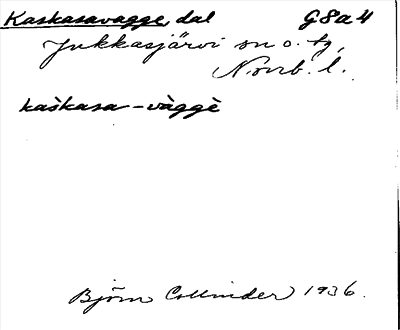 Kaskasavagge, dal G8a4
Jukkasjärvi sn o. tg,
Norrb. l.
kaskasa-vàggè
Björn Collinder 1936.